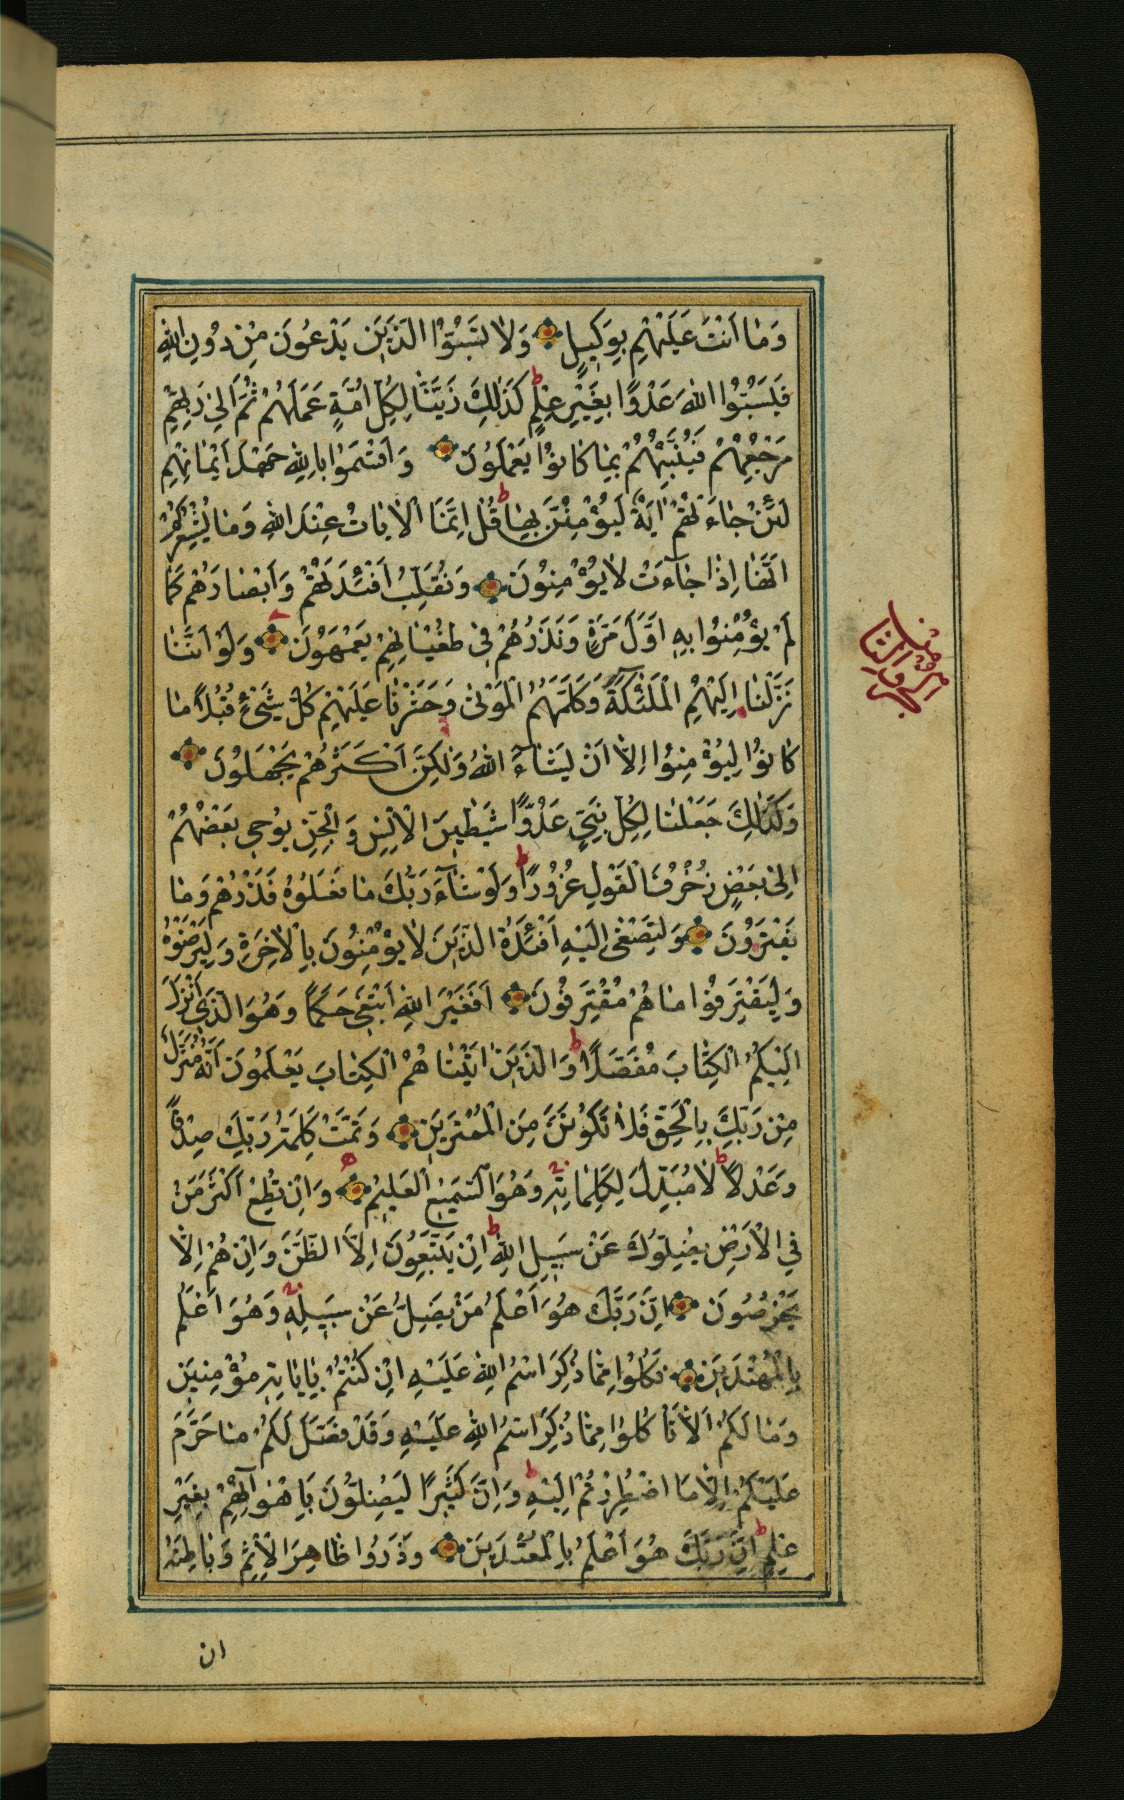 وَمٰا اَنْتَ عَلَيْهِمْ بِوَكِيلٍ وَلٰا تَسُبُّوا الَّذِينَ يَدْعُونَ مِنْ دُونِ اللهِ
فَيَسُبُّوا اللهَ عَدْوًا بِغَيْرِ عِلْمٍ ط كَذٰلِكَ زَيَّنَّا لِكُلِّ اُمَّةٍ عَمَلَهُمْ ثُمَّ اِلىٰ رَبِّهِمْ
مَرْجِعُهُمْ فَيُنَبِّئُهُمْ بِمٰا كٰانُوا يَعْمَلُونَ وَاَقْسَمُوا بِاللهِ جَهْدَ اَيْمٰانِهِمْ
لَئِنْ جٰاءَتْهُمْ اٰيَةٌ لَيُؤْمِنُنَّ بِهٰا ط قُلْ اِنَّمَا الْاٰيٰاتُ عِنْدَ اللهِ وَمٰا يُشْعِرُكُمْ
اَنَّهٰا اِذٰا جٰآءَتْ لٰا يُؤْمِنُونَ وَنُقَلِّبُ اَفْئِدَتَهُمْ وَاَبْصٰارَهُمْ كَمٰا
لَمْ يُؤْمِنُوا بِهِ اَوَّلَ مَرَّةٍ وَنَذَرُهُمْ فِي طُغْيٰانِهِمْ يَعْمَهُونَ وَلَوْ اَنَّنٰا
نَزَّلْنٰا اِلَيْهِمُ الْمَلٰئِكَةَ وَكَلَّمَهُمُ الْمَوْتىٰ وَحَشَرْنٰا عَلَيْهِمْ كُلَّ شَيْءٍ قُبُلاً مٰا
كٰانُوا لِيُؤْمِنُوا اِلّٰا اَنْ يَشٰاءَ اللهُ وَلٰكِنَّ اَكْثَرَهُمْ يَجْهَلُونَ
وَكَذٰلِكَ جَعَلْنٰا لِكُلِّ نَبِيٍّ عَدُوًّا شَيٰطِينَ الْاِنْسِ وَالْجِنِّ يُوحِي بَعْضُهُمْ
اِلىٰ بَعْضٍ زُخْرُفَ الْقَوْلِ غُرُورًا ط وَلَوْ شٰآءَ رَبُّكَ مٰا فَعَلُوهُ فَذَرْهُمْ وَمٰا
يَفْتَرُونَ وَلِتَصْغىٰ اِلَيْهِ اَفْئِدَةُ الَّذِينَ لٰا يُؤْمِنُونَ بِالْاٰخِرَةِ وَلِيَرْضَوْهُ
وَلِيَقْتَرِفُوا مٰا هُمْ مُقْتَرِفُونَ اَفَغَيْرَ اللهِ اَبْتَغِي حَكَمًا وَهُوَ الَّذِي اَنْزَلَ
اِلَيْكُمُ الْكِتٰابَ مُفَصَّلًا ط وَالَّذِينَ اٰتَيْنٰا هُمُ الْكِتٰابَ يَعْلَمُونَ اَنَّهُ مُنَزَّلٌ
مِنْ رَبِّكَ بِالْحَقِّ فَلٰا تَكُونَنَّ مِنَ الْمُمْتَرِينَ وَتَمَّتْ كَلِمَةُ رَبِّكَ صِدْقًا
وَعَدْلاً ط لٰا مُبَدِّلَ لِكَلِمٰاتِهِ وَهُوَ السَّمِيعُ الْعَلِيمُ وَاِنْ تُطِعْ اَكْثَرَ مَنْ
فِي الْاَرْضِ يُضِلُّوكَ عَنْ سَبِيلِ اللهِ ط اِنْ يَتَّبِعُونَ اِلَّا الظَّنَّ وَاِنْ هُمْ اِلّٰا
يَخْرُصُونَ اِنَّ رَبَّكَ هُوَ اَعْلَمُ مَنْ يَضِلُّ عَنْ سَبِيلِهِ وَهُوَ اَعْلَمُ
بِالْمُهْتَدِينَ فَكُلُوا مِمّٰا ذُكِرَ اسْمُ اللهِ عَلَيْهِ اِنْ كُنْتُمْ بِاٰيٰاتِهِ مُؤْمِنِينَ
وَمٰا لَكُمْ اَلّٰا تَأْكُلُوا مِمّٰا ذُكِرَ اسْمُ اللهِ عَلَيْهِ وَقَدْ فَصَّلَ لَكُمْ مٰا حَرَّمَ
عَلَيْكُمْ اِلّٰا مَا اضْطُرِرْتُمْ اِلَيْهِ ط وَاِنَّ كَثِيرًا لَيُضِلُّونَ بِاَهْوٰآئِهِمْ بِغَيْرِ
عِلْمٍ ط اِنَّ رَبَّكَ هُوَ اَعْلَمُ بِالْمُعْتَدِينَ وَذَرُوا ظٰاهِرَ الْاِثْمِ وَبٰاطِنَهُ
ان